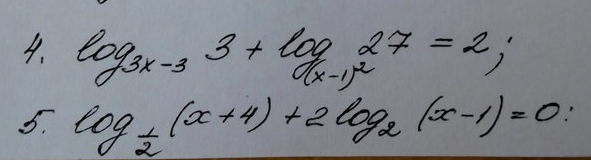 4. log_{3x-3} 3 + log_{(x-1)^2} 27 = 2;
5. log_{1/2} (x+4) + 2 log_2 (x-1) = 0: